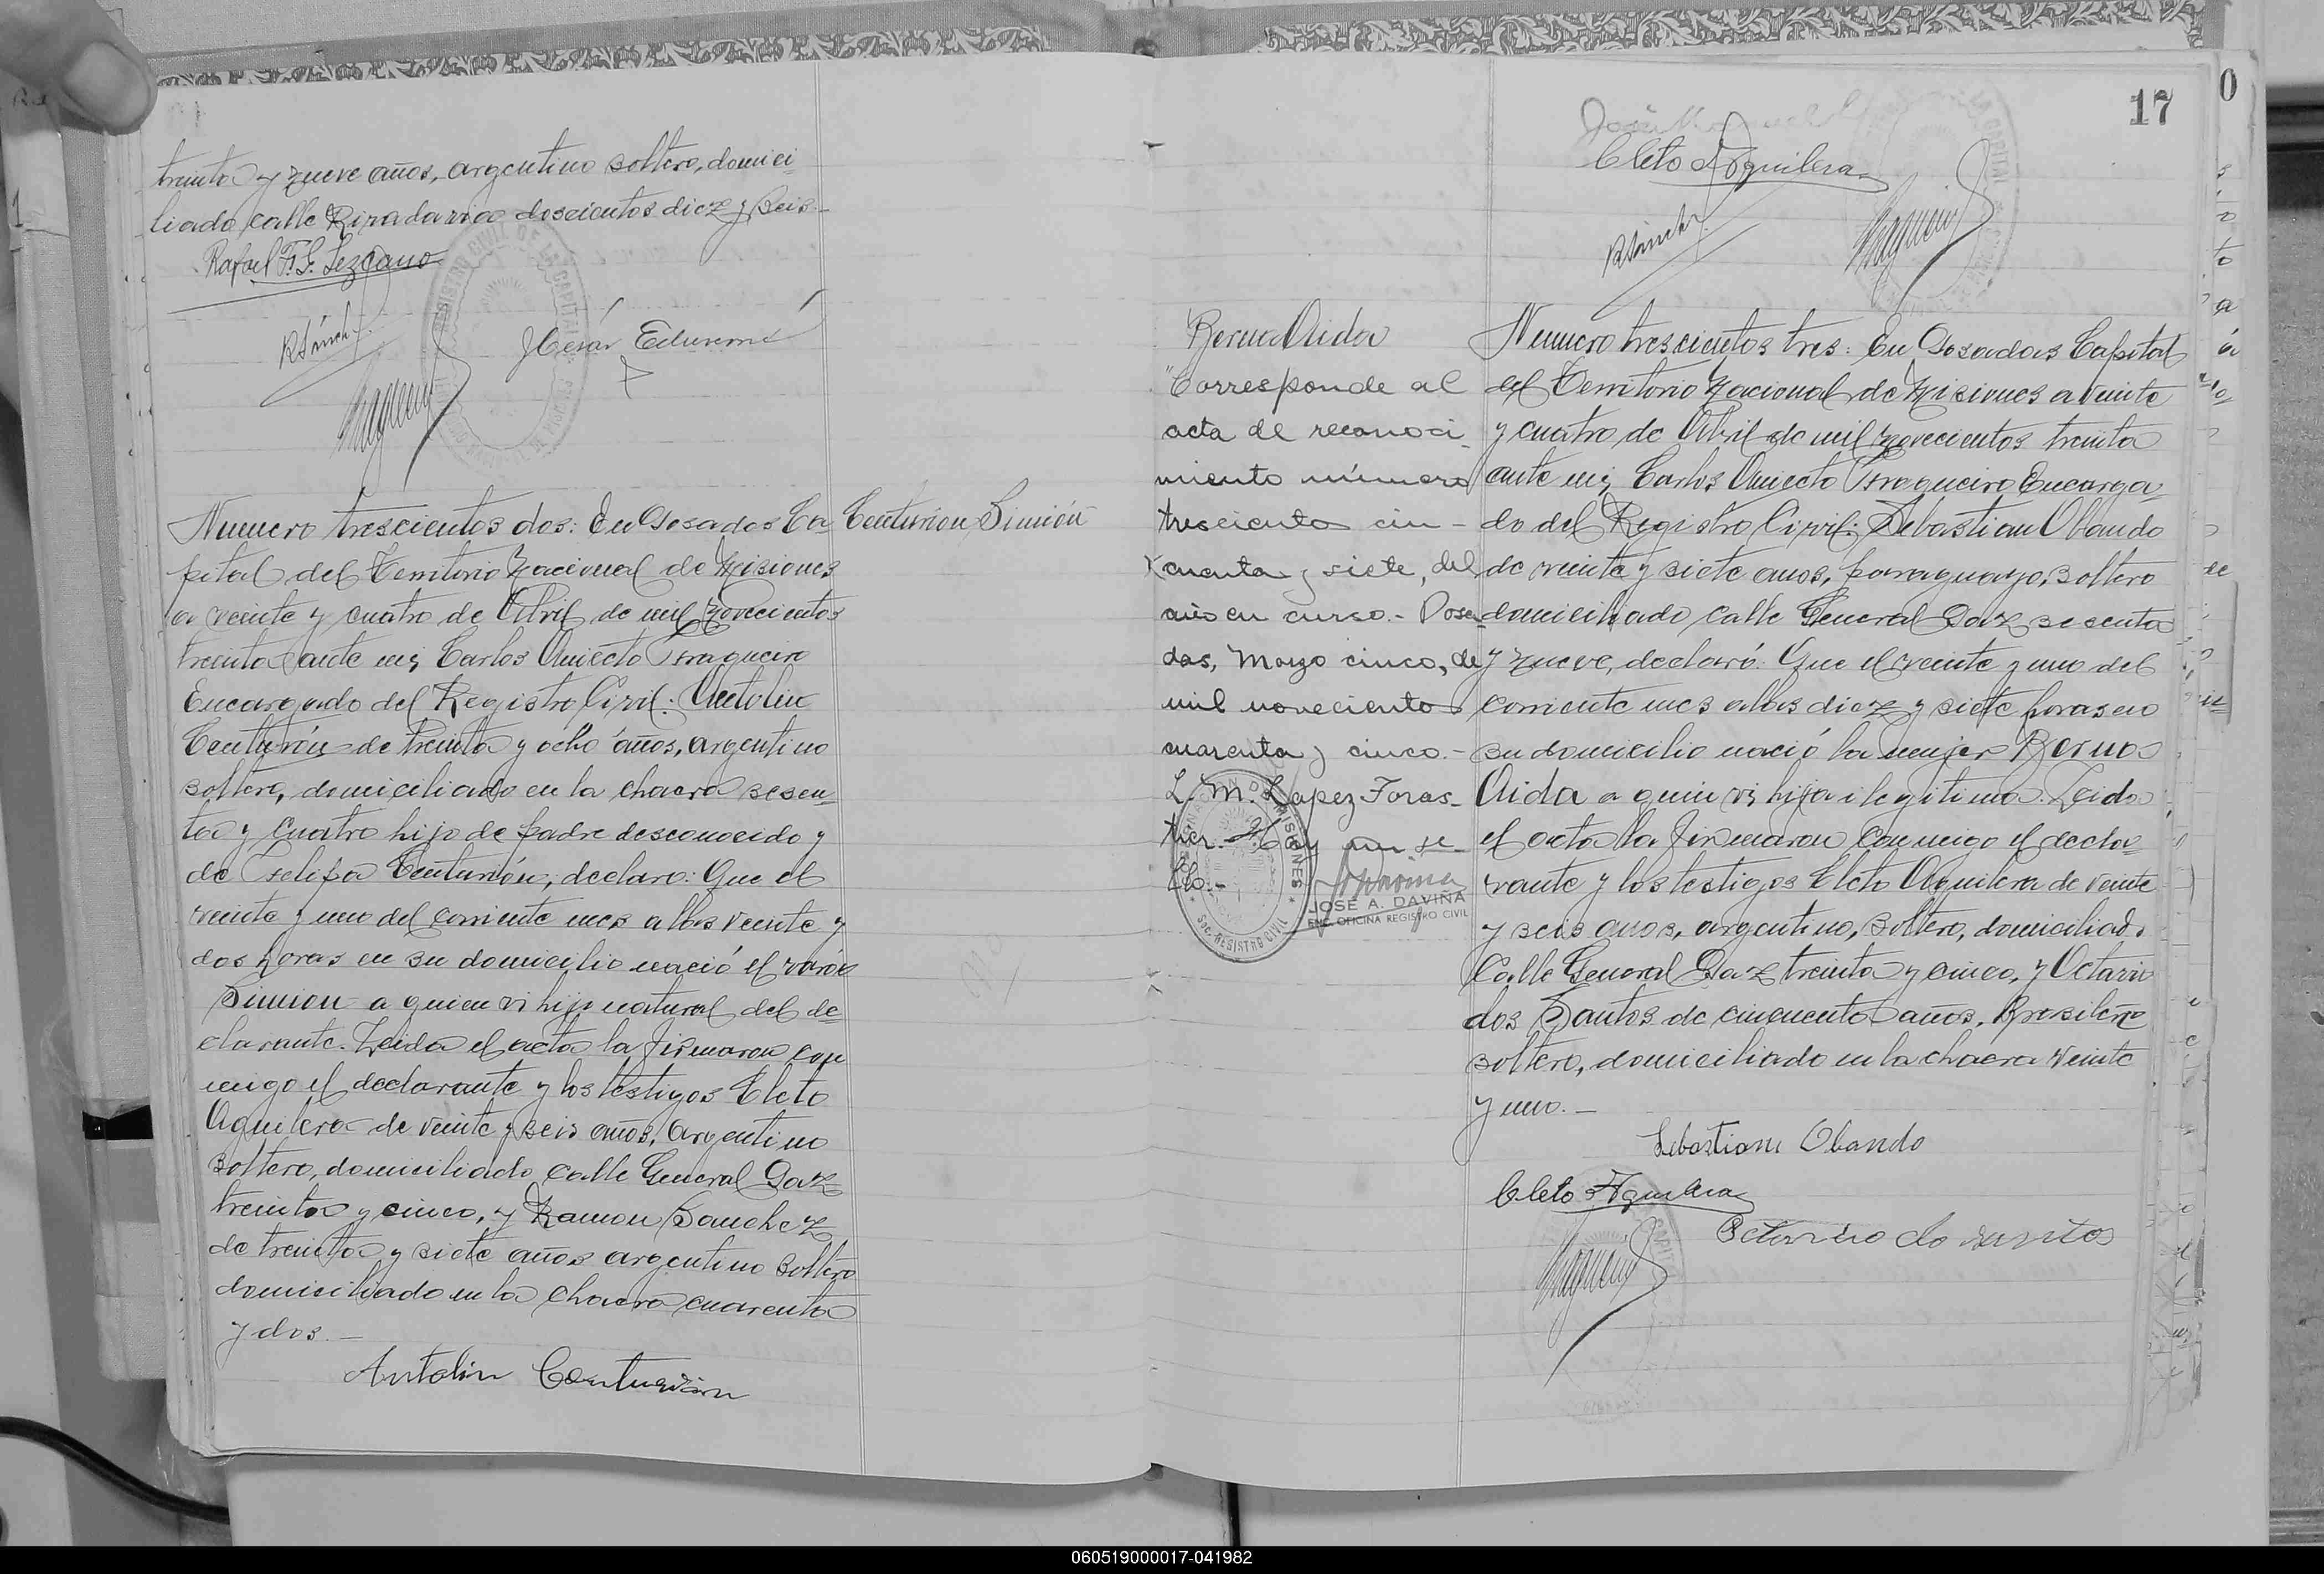 treinta y nueve años, argentino soltero, domici
liado calle Rivadavia doscientos diez y seis.-
Rafael F. S. Lezcano
RSánch
César
Numero trescientos dos: En Posadas Ca
Centurion, Simión
pital del Territorio Nacional de Misiones
a veinte y cuatro de Abril de mil novecientos
treinta ante mi, Carlos Aniceto Fragueiro
Encargado del Registro Civil: Antolin
Centurión de treinta y ocho años, argentino
soltero, domiciliado en la chacra sesen-
ta y cuatro hijo de padre desconocido y
de Felipa Centurión, declaro: Que el
veinte y uno del corriente mes a las veinte y
dos horas en su domicilio nació el varón
Simion a quien vi hijo natural del de-
clarante. Leida el acta la firmaron con
migo el declarante y los testigos Cleto
Aguilera de veinte y seis años, argentino
soltero, domiciliado calle General Paz
treinta y cinco, y Ramon Sanchez
de treinta y siete años argentino soltero
domiciliado en la chacra cuarenta
y dos.-
Antolin Centurión
17
Cleto Aguilera
RSánch
Berna Aida
"Corresponde al
acta de reconoci
miento número
trescientos cin-
cuenta y siete, del
año en curso.- Posa-
das, Marzo cinco, de
mil novecientos
cuarenta y cinco.-
L. M. Lapez Foras-
tier.- Hay un se-
llo.-
SOC. REGISTRO CIVIL
JOSÉ A. DAVIÑA
ENC. OFICINA REGISTRO CIVIL
Numero trescientos tres: En Posadas Capital
del Territorio Nacional de Misiones a veinte
y cuatro de Abril de mil novecientos treinta
ante mi, Carlos Aniceto Fragueiro Encarga
do del Registro Civil: Sebastian Obando
de veinte y siete años, paraguayo, soltero
domiciliado calle General Paz sesenta
y nueve, declaró: Que el veinte y uno del
corriente mes a las diez y siete horas en
su domicilio nació la mujer Berna
Aida a quien vi hija ilegitima. Leida
el acta la firmaron conmigo el decla-
rante y los testigos Cleto Aguilera de veinte
y seis años, argentino, soltero, domiciliado
Calle General Paz treinta y cinco, y Octavio
dos Santos de cincuenta años, Brasileño
soltero, domiciliado en la chacra veinte
y uno.-
Sebastian Obando
Cleto Aguilera
Octavio do santos
060519000017-041982